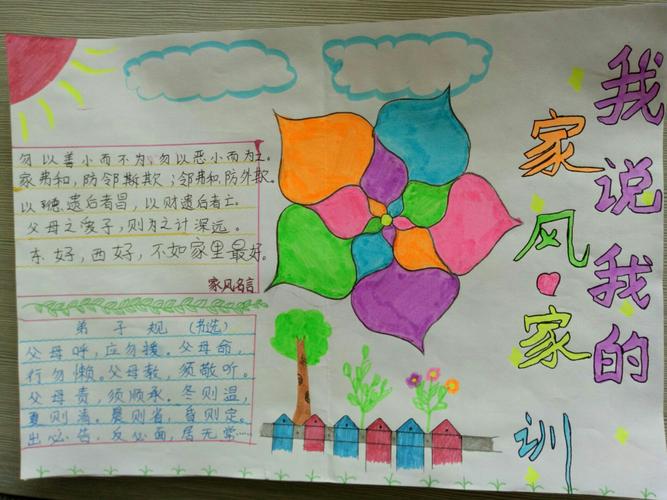 我说我的
家风家训
勿以善小而不为、勿以恶小而为之。
家弗和,防邻斯欺;邻弗和,防外欺。
以德遗后者昌,以财遗后者亡。
父母之爱子,则为之计深远。
东好,西好,不如家里最好。
家风名言
弟子规 (节选)
父母呼,应勿缓。父母命,
行勿懒。父母教,须敬听。
父母责,须顺承。冬则温,
夏则清。晨则省,昏则定。
出必告,反必面,居无常……